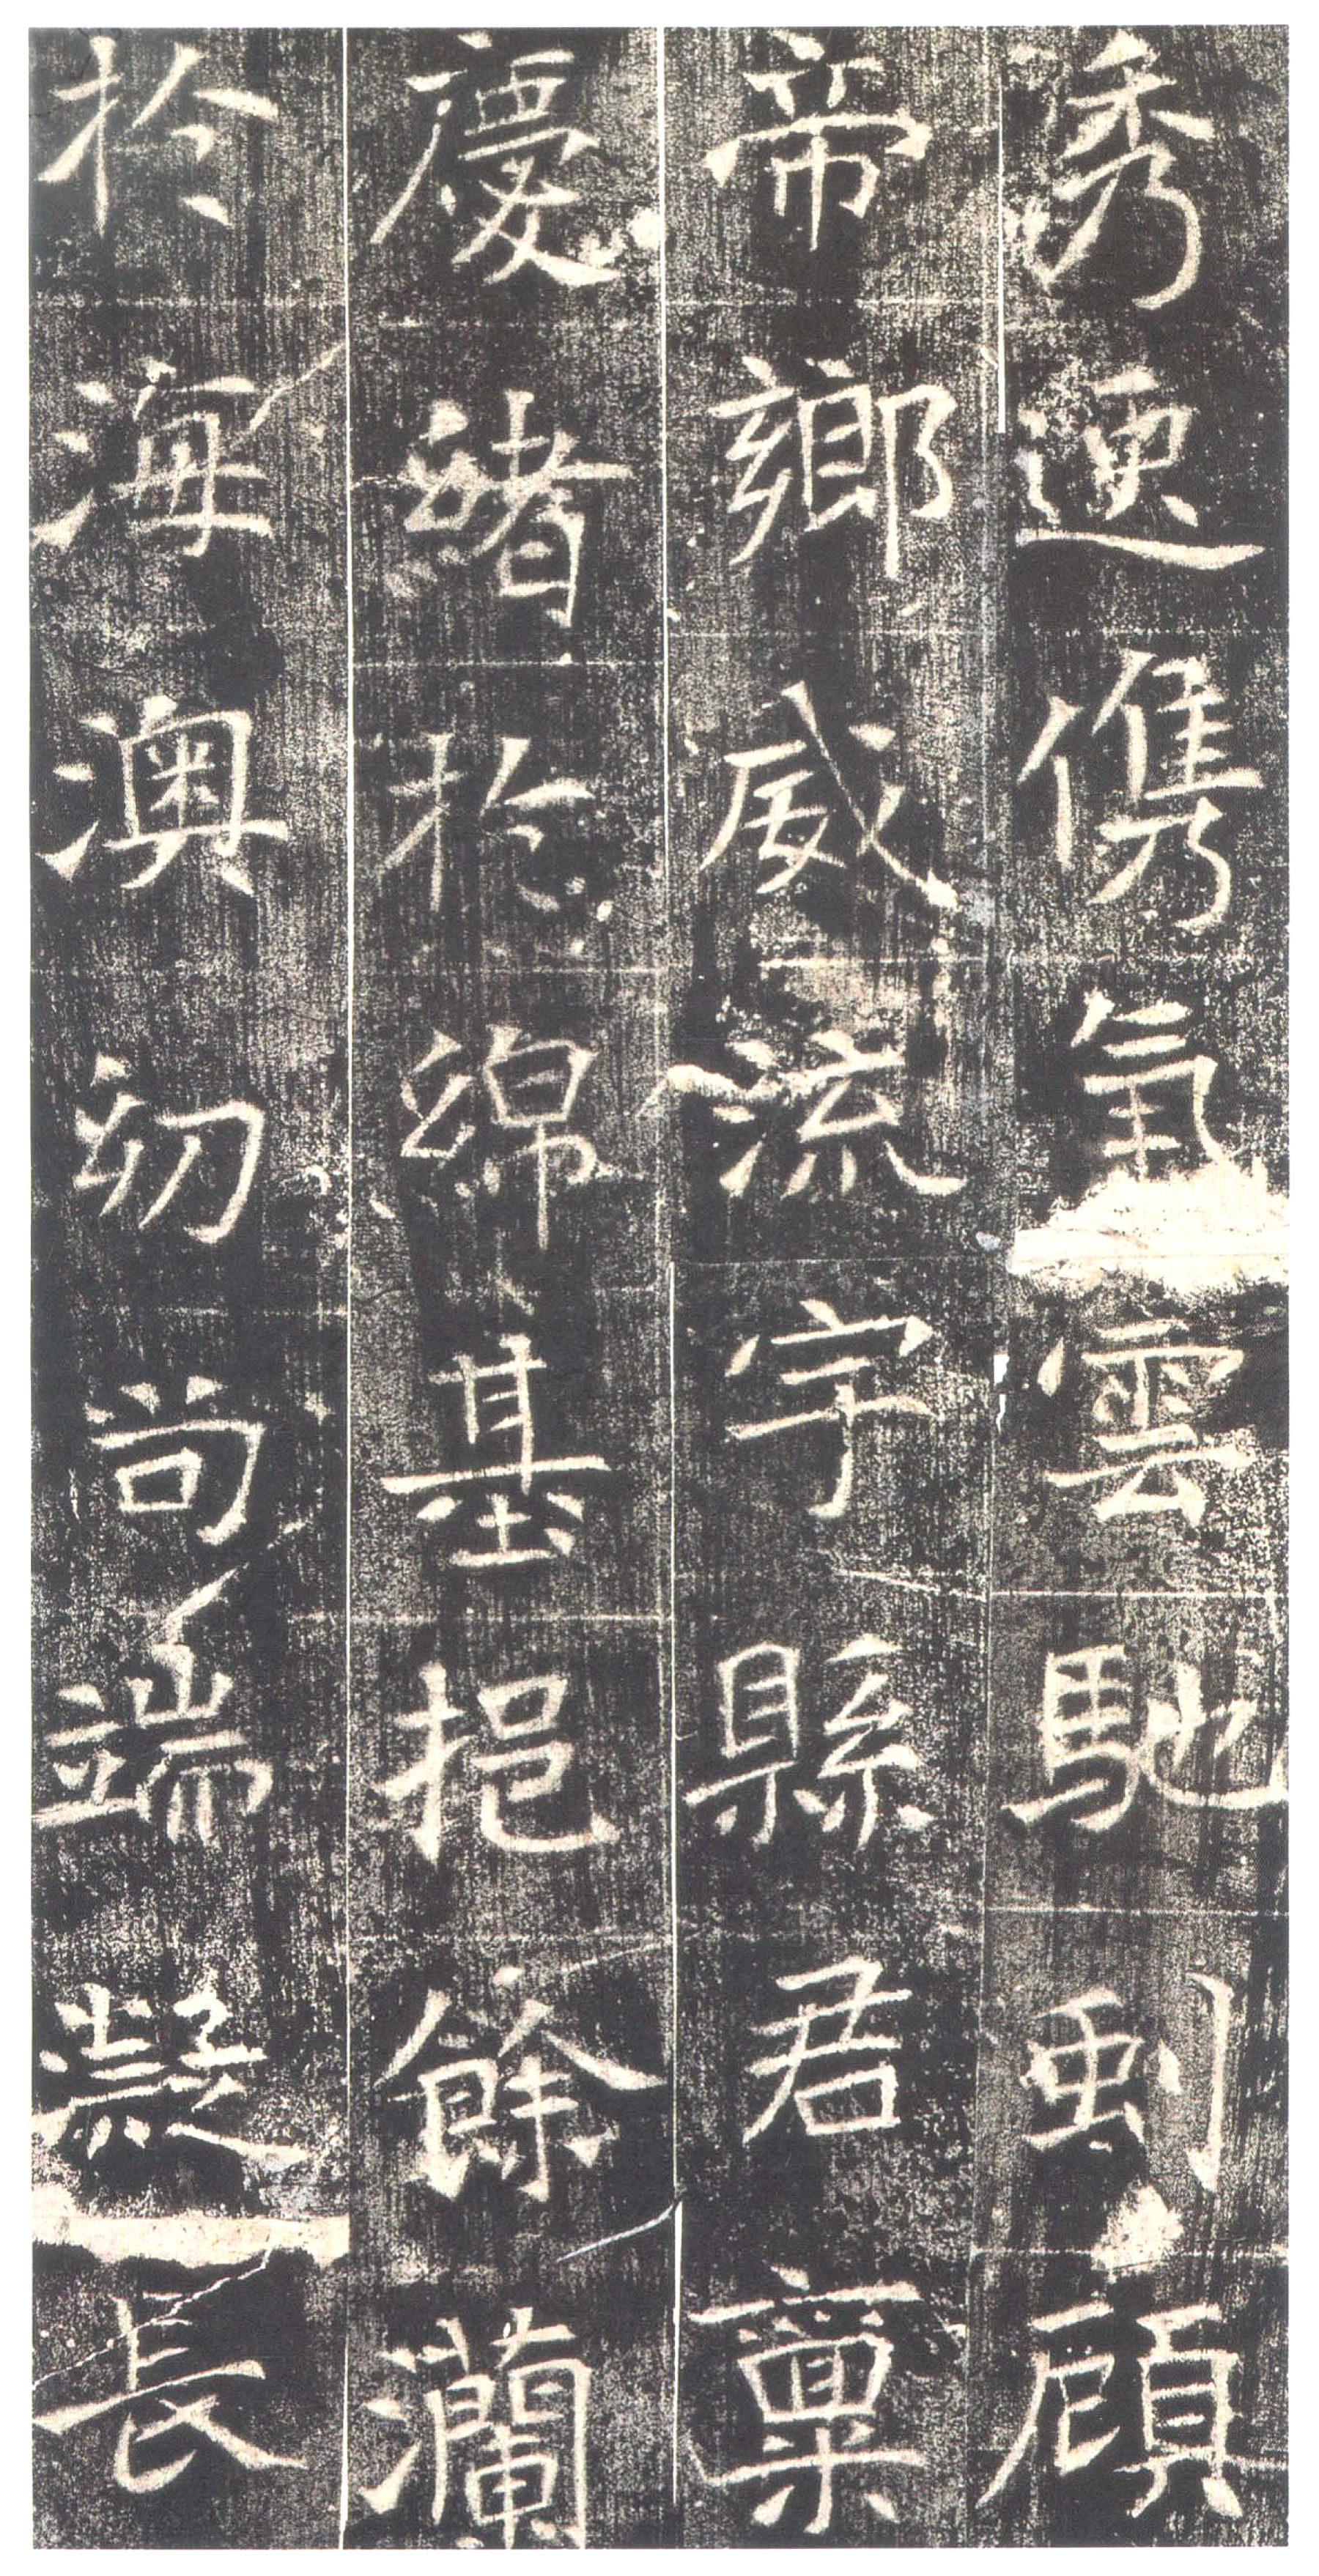 儁氣雲馳顧
帝鄉威流宇縣君稟
慶緒於綿基挹餘瀾
於海澳幼尚端凝長